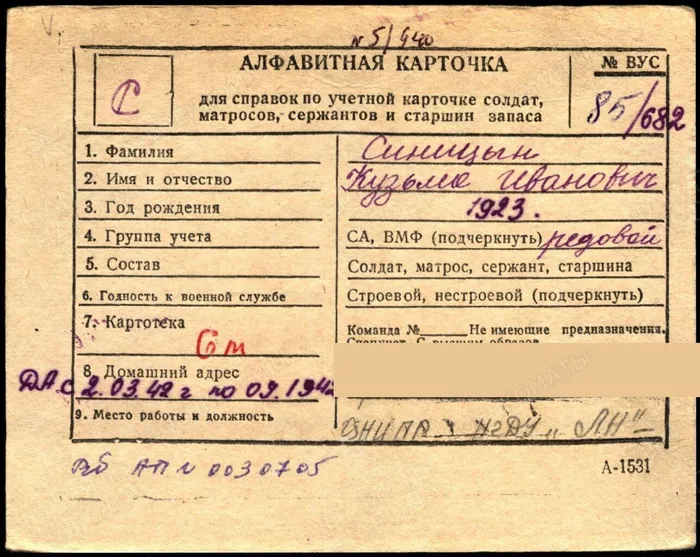 № 5/940
АЛФАВИТНАЯ КАРТОЧКА
для справок по учетной карточке солдат,
матросов, сержантов и старшин запаса
№ ВУС
85/682
С
1. Фамилия
Синицын
2. Имя и отчество
Кузьма Иванович
3. Год рождения
1923.
4. Группа учета
СА, ВМФ (подчеркнуть) рядовой
5. Состав
Солдат, матрос, сержант, старшина
6. Годность к военной службе
Строевой, нестроевой (подчеркнуть)
7. Картотека
Команда № Не имеющие предназначения.
8. Домашний адрес
ДА с 2.03.42 г по 09.1942
9. Место работы и должность
НГДУ „ЛН"
вб АП № 0030705
А-1531